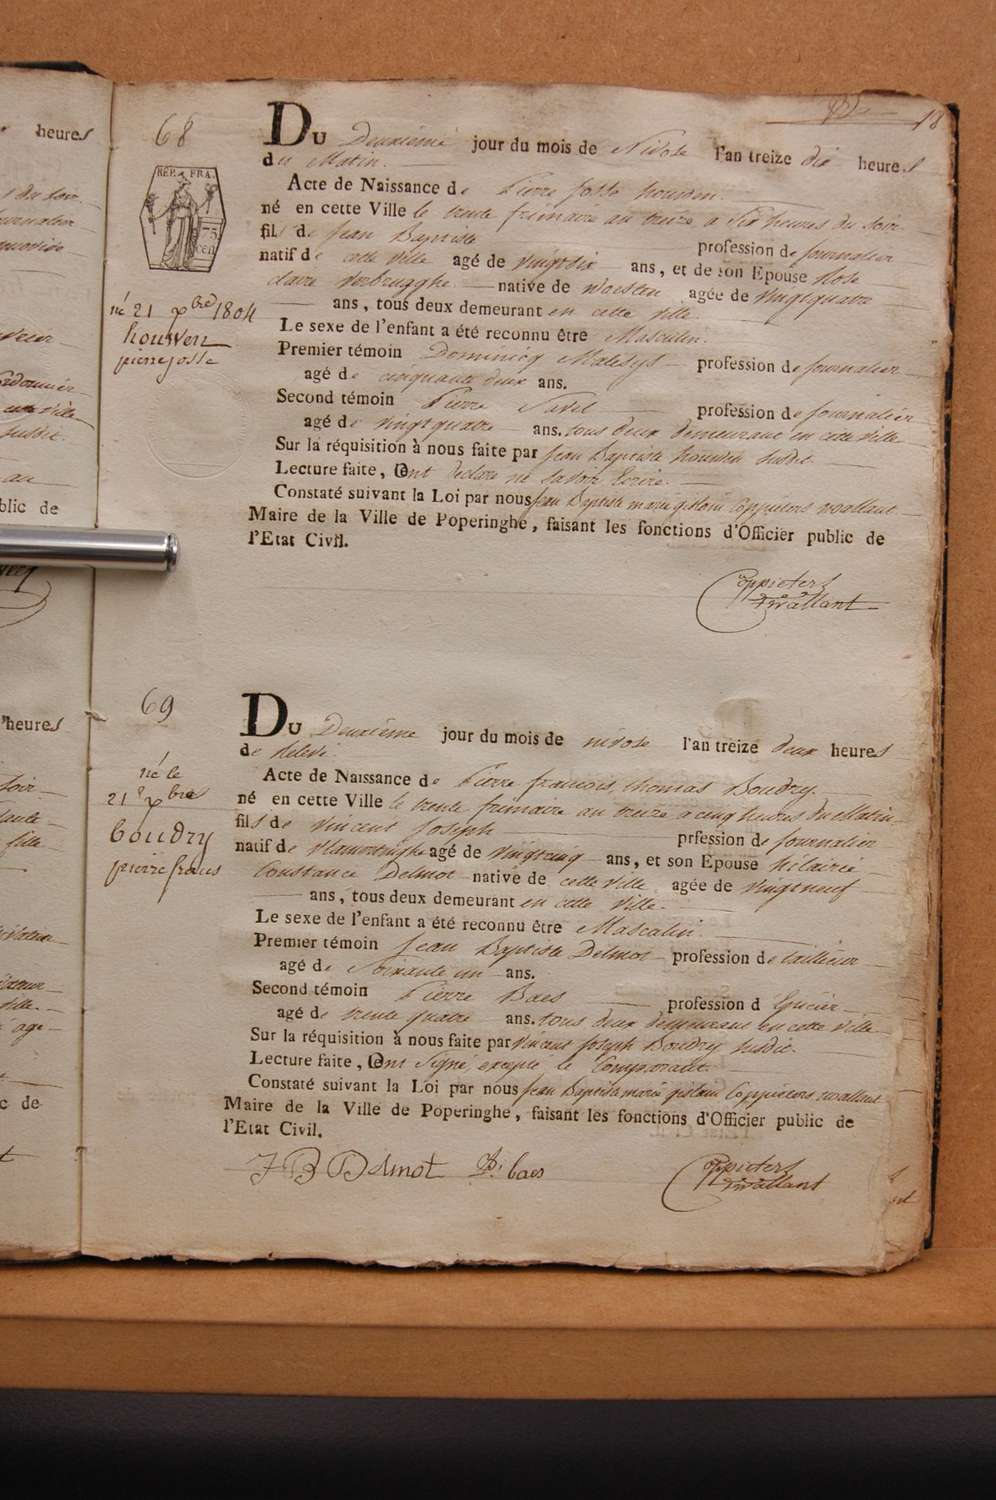 18
68
REP. FRA.
75
cen
né 21 xbre 1804
houwen
pierre josse
Du Deuxiême jour du mois de Nivose l'an treize dix heures
du Matin.
Acte de Naissance de Pierre Josse houwen.
né en cette Ville le trente frimaire an treize a six heures du soir
fils de Jean Baptiste profession de journalier
natif de cette ville agé de vingt six ans, et de son Epouse Rose
claire verbrugghe native de woesten agée de vingt quatre
ans, tous deux demeurant en cette ville.
Le sexe de l'enfant a été reconnu être Masculin.
Premier témoin Dominicq Malesys profession de journalier
agé de cinquante deux ans.
Second témoin Pierre profession de journalier
agé de vingt quatre ans. tous deux demeurant en cette ville
Sur la réquisition à nous faite par Jean Baptiste houwen susdit
Lecture faite, Ont declaré ne savoir Ecrire.
Constaté suivant la Loi par nous Jean Baptiste marie gislain Coppieters wallant
Maire de la Ville de Poperinghe, faisant les fonctions d'Officier public de
l'Etat Civil.
Coppieters
wallant
69
né le
21e xbre
boudry
pierre francois
Du Deuxiême jour du mois de nivose l'an treize deux heures
de relevé.
Acte de Naissance de Pierre francois thomas Boudry.
né en cette Ville le trente frimaire an treize a cinq heures du Matin
fils de vincent Joseph prfession de journalier
natif de vlamertinghe agé de vingt cinq ans, et son Epouse hilairée
Constance Delmot native de cette ville agée de vingt neuf
ans, tous deux demeurant en cette ville.
Le sexe de l'enfant a été reconnu être Masculin.
Premier témoin Jean Baptiste Delmot profession de tailleur
agé de Soixante un ans.
Second témoin Pierre Baes profession d Epicier
agé de trente quatre ans. tous deux demeurant en cette ville
Sur la réquisition à nous faite par vincent Joseph Boudry susdit.
Lecture faite, Ont signé, excepte le Comparant.
Constaté suivant la Loi par nous Jean Baptiste marie gislain Coppieters wallant
Maire de la Ville de Poperinghe, faisant les fonctions d'Officier public de
l'Etat Civil.
J B Delmot P: baes
Coppieters
wallant
heures
blic de
heures
c de